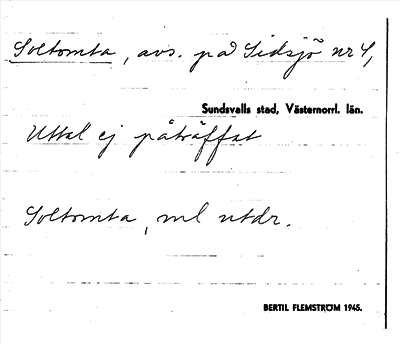 Soltomta, avs. på Sidsjö nr 4,
Sundsvalls stad, Västernorrl. län.
Uttal ej påträffat
Soltomta, ml utdr.
BERTIL FLEMSTRÖM 1945.